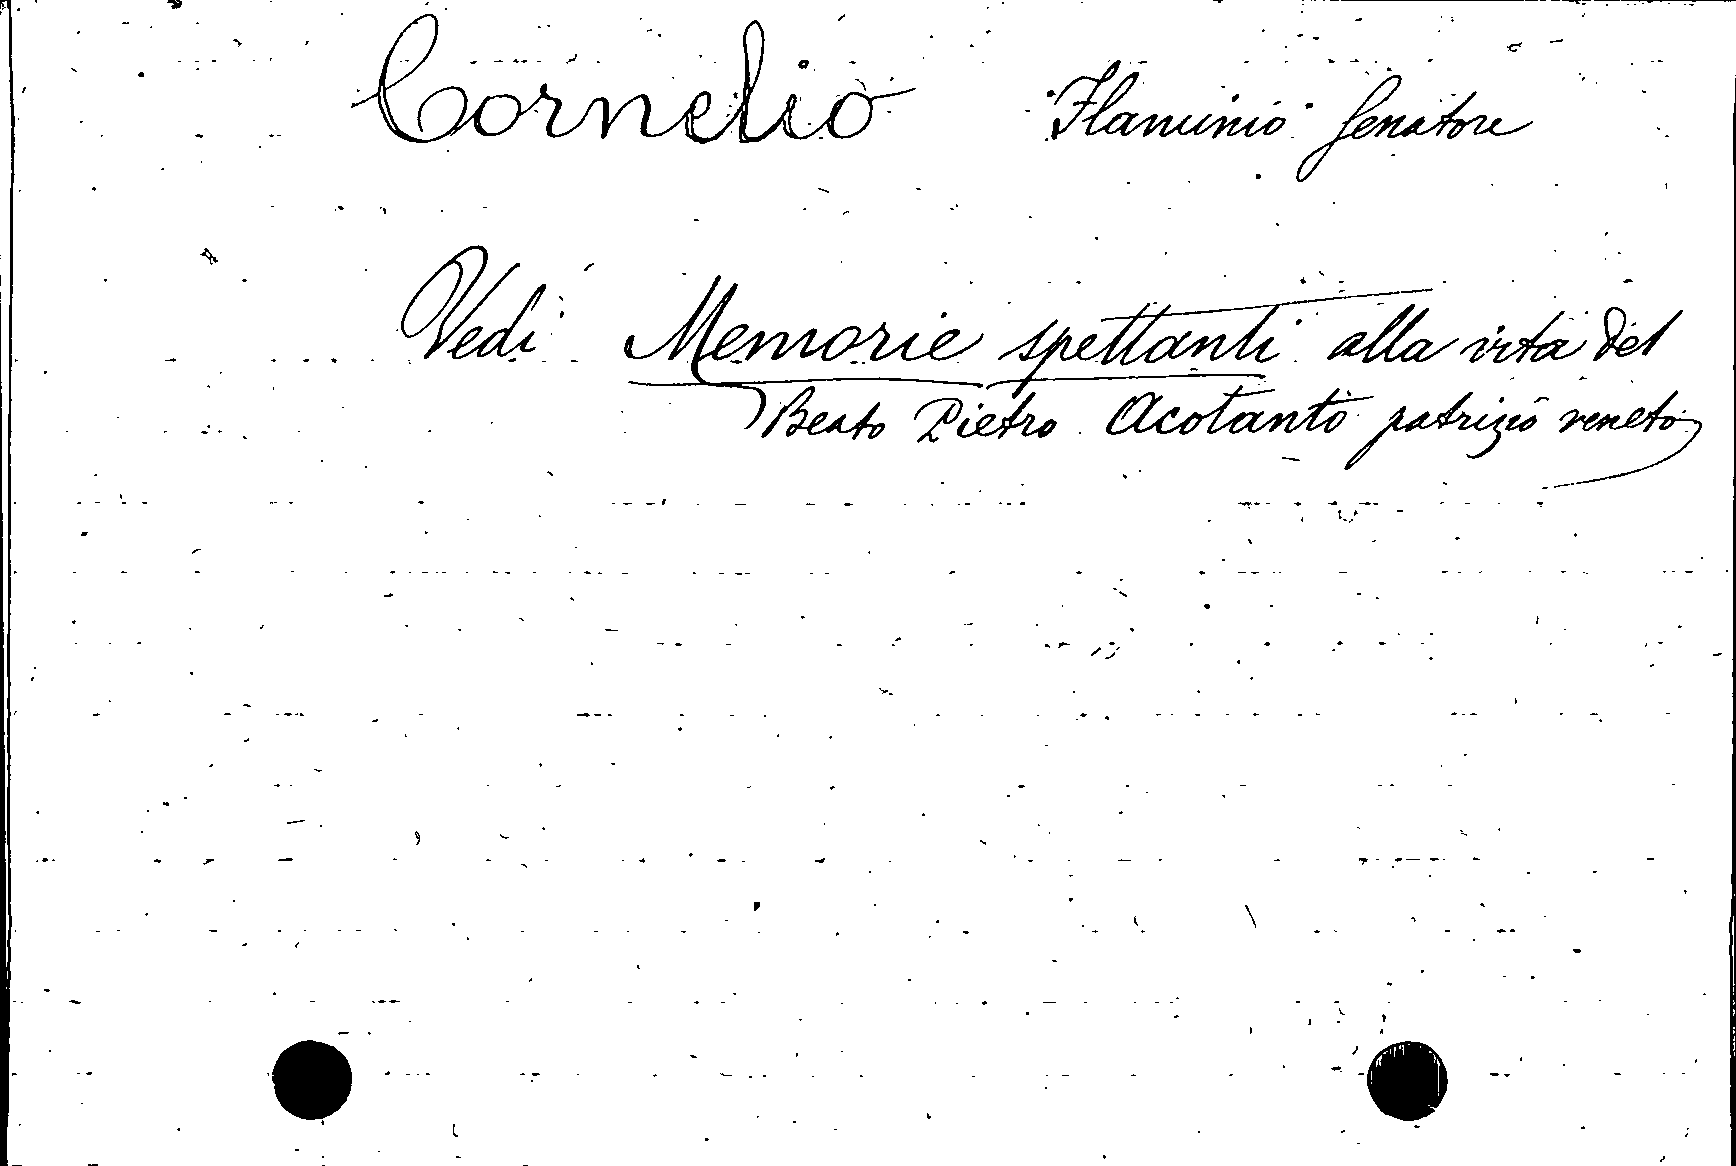 Cornelio Flaminio Senatore
Vedi Memorie spettanti alla vita del
Beato Pietro Acotanto patrizio veneto